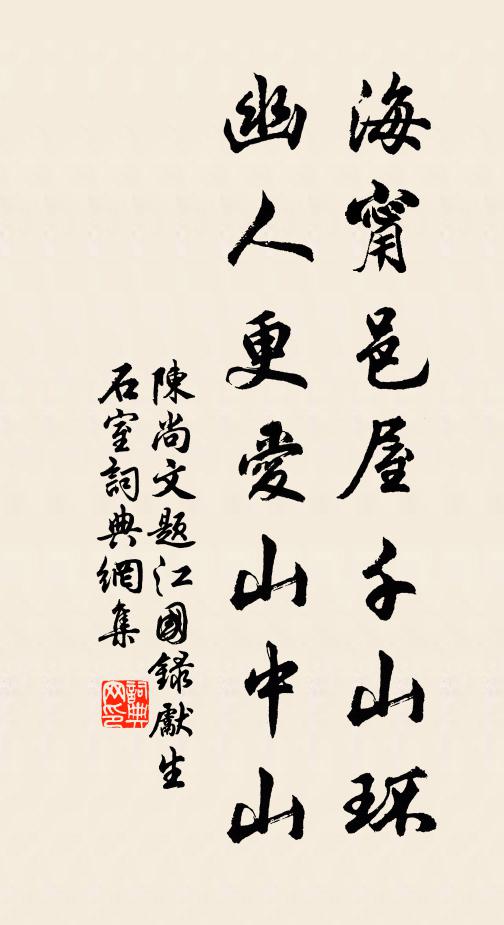 海甯邑屋千山环
幽人更愛山中山
陳尚文題江國錄獻生
石室詞典網集
詞典网印